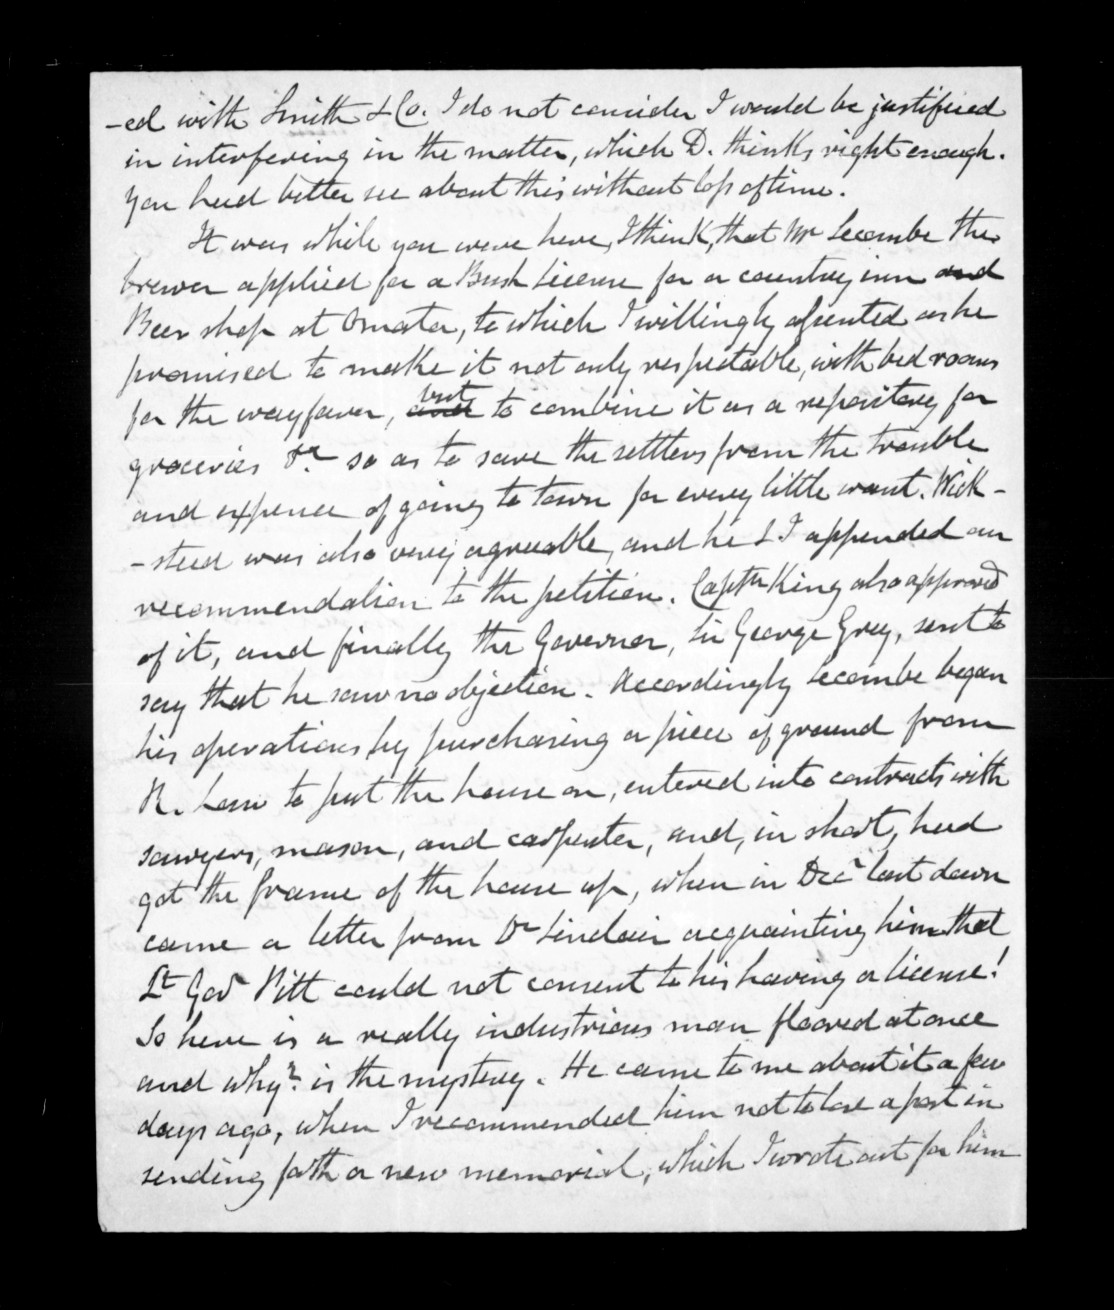 -ed with Smith & Co. I do not consider I would be justified
in interfering in the matter, which D. thinks right enough.
You had better see about this without loss of time.
It was while you were here, I think, that Mr Seccombe the
brewer applied for a Bush License for a country inn and
Beer shop at Omata, to which I willingly assented as he
promised to make it not only respectable, with bed rooms
for the wayfarer, and but to combine it as a repository for
groceries &c so as to save the settlers from the trouble
and expense of going to town for every little want. Wick-
-steed was also very agreeable, and he & I appended our
recommendation to the petition. Captn King also approved
of it, and finally the Governor, Sir George Grey, sent to
say that he saw no objection. Accordingly Secombe began
his operations by purchasing a piece of ground from
R. Law to put the house on, entered into contracts with
sawyers, mason, and carpenter, and, in short, had
got the frame of the house up, when in Decr last down
came a letter from Dr Sinclair acquainting him that
Lt Govr Pitt could not consent to his having a license!
So here is a really industrious man floored at once
and why? is the mystery. He came to me about it a few
days ago, when I recommended him not to lose a post in
sending forth a new memorial, which I wrote out for him